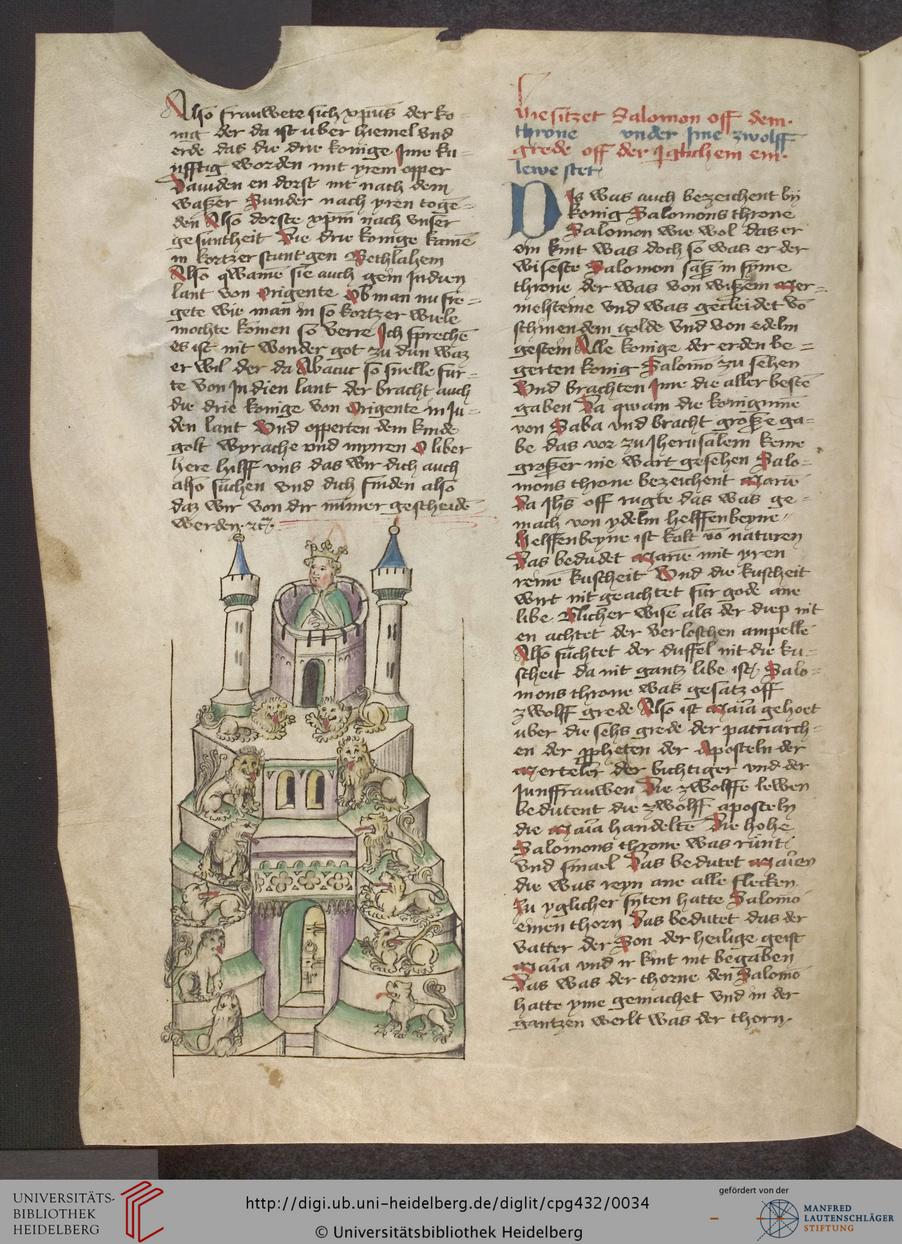 Also frauwete sich xpus der ko
nig der da ist uber hiemel vnd
erde das die drie konige Jme ku
nfftig worden mit yrem opper
Dauiden en dorst nit nach dem
waßer Sunder nach yren toge
den Also dorste xpm nach vnser
gesuntheit Die drie konige kame
in kortzer stunt gen Bethlahem
Also qwame sie auch gein Indien
lant von Origente Ob man nu fre
gete wie man in so kortzer wiele
mochte komen so verre Ich spreche
es ist nit wonder got zu dun waz
er wil der da Abacuc so snelle fur
te von Indien lant der bracht auch
die drie konige von Origente in Ju
den lant Vnd opperten dem kinde
golt wyrache vnd myrren O liber
here hilff vns das wir dich auch
also suchen vnd dich finden also
daz wir von dir nimmer gescheide
werden ꝛc
Hie sitzet Salomon off dem
throne vnder Jme zwolff
grede off der Jglichem ein
lewe stet
Dis was auch bezeichent by
konig Salomons throne
Salomon wie wol das er
ein kint was doch so was er der
wiseste Salomon saß in syme
throne der was von wißem Mer
melsteine vnd was gecleidet vo
schinendem golde vnd von edelm
gestein Alle konige der erden be
gerten konig Salomo zu sehen
Vnd brachten Jme die aller beste
gaben Da qwam die konigynne
von Saba vnd bracht große ga
be das vor zu Jherusalem keine
großer nie wart gesehen Salo
mons throne bezeichent Marie
Da Jhs off rugte das was ge
mach von ydelm helffenbeyne
helffenbeyne ist kalt vo naturen
Das bedudet Marie mit yren
reine kuscheit Vnd die kuscheit
wirt nit geachtet fur gode ane
libe Glicher wise als der diep nit
en achtet der verloschen ampelle
Also suchtet der duffel nit die ku
scheit da nit gantz libe ist Salo
mons throne was gesatz off
zwolff grede Also ist Maria gehoet
uber die sehs grede der patriarch
en der ppheten der Aposteln der
Merteler der bichtiger vnd der
Junffrauwen Die zwolffe lewen
bedutent die zwolff aposteln
die Maria handelte Die hohe
Salomons throne was runt
vnd smael Das bedutet Marien
die was reyn ane alle flecken
Zu yglicher syten hatte Salomo
einen thorn Das bedutet das der
vatter der Son der heilige geist
Maria vnd ir kint mit begaben
Das was der thorne den Salomo
hatte yme gemachet vnd in der
gantzen werlt was der thorn
UNIVERSITÄTS-
BIBLIOTHEK
HEIDELBERG
http://digi.ub.uni-heidelberg.de/diglit/cpg432/0034
© Universitätsbibliothek Heidelberg
gefördert von der
MANFRED
LAUTENSCHLÄGER
STIFTUNG